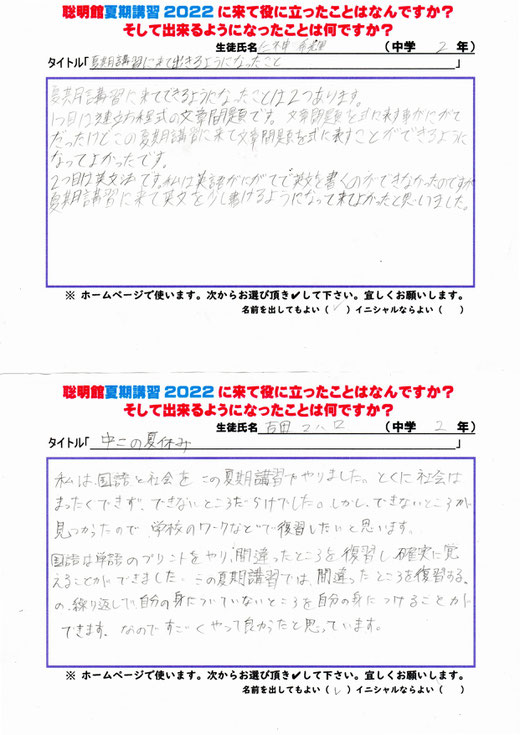 聡明館夏期講習2022に来て役に立ったことはなんですか?
そして出来るようになったことは何ですか?
生徒氏名 (中学 2 年)
タイトル「夏期講習に来て出きるようになったこと」
夏期講習に来てできるようになったことは2つあります。
1つ目は連立方程式の文章問題です。文章問題を式に表す事がにがて
だったけどこの夏期講習に来て文章問題を式に表すことができるように
なってよかったです。
2つ目は英文法です。私は英語がにがてで英文を書くのができなかったのですが
夏期講習に来て英文を少し書けるようになって来てよかったと思いました。
※ ホームページで使います。次からお選び頂き✔して下さい。宜しくお願いします。
名前を出してもよい(✓)イニシャルならよい( )
聡明館夏期講習2022に来て役に立ったことはなんですか?
そして出来るようになったことは何ですか?
生徒氏名 吉田 (中学 2 年)
タイトル「中二の夏休み」
私は、国語と社会をこの夏期講習でやりました。とくに社会は
まったくできず、できないところだらけでした。しかし、できないところが
見つかったので、学校のワークなどで復習したいと思います。
国語は単語のプリントをやり、間違ったところを復習し確実に覚
えることができました。この夏期講習では、間違ったところを復習する、
の、繰り返しで、自分の身についていないところを自分の身につけることが
できます。なのですごくやって良かったと思っています。
※ ホームページで使います。次からお選び頂き✔して下さい。宜しくお願いします。
名前を出してもよい(✓)イニシャルならよい( )